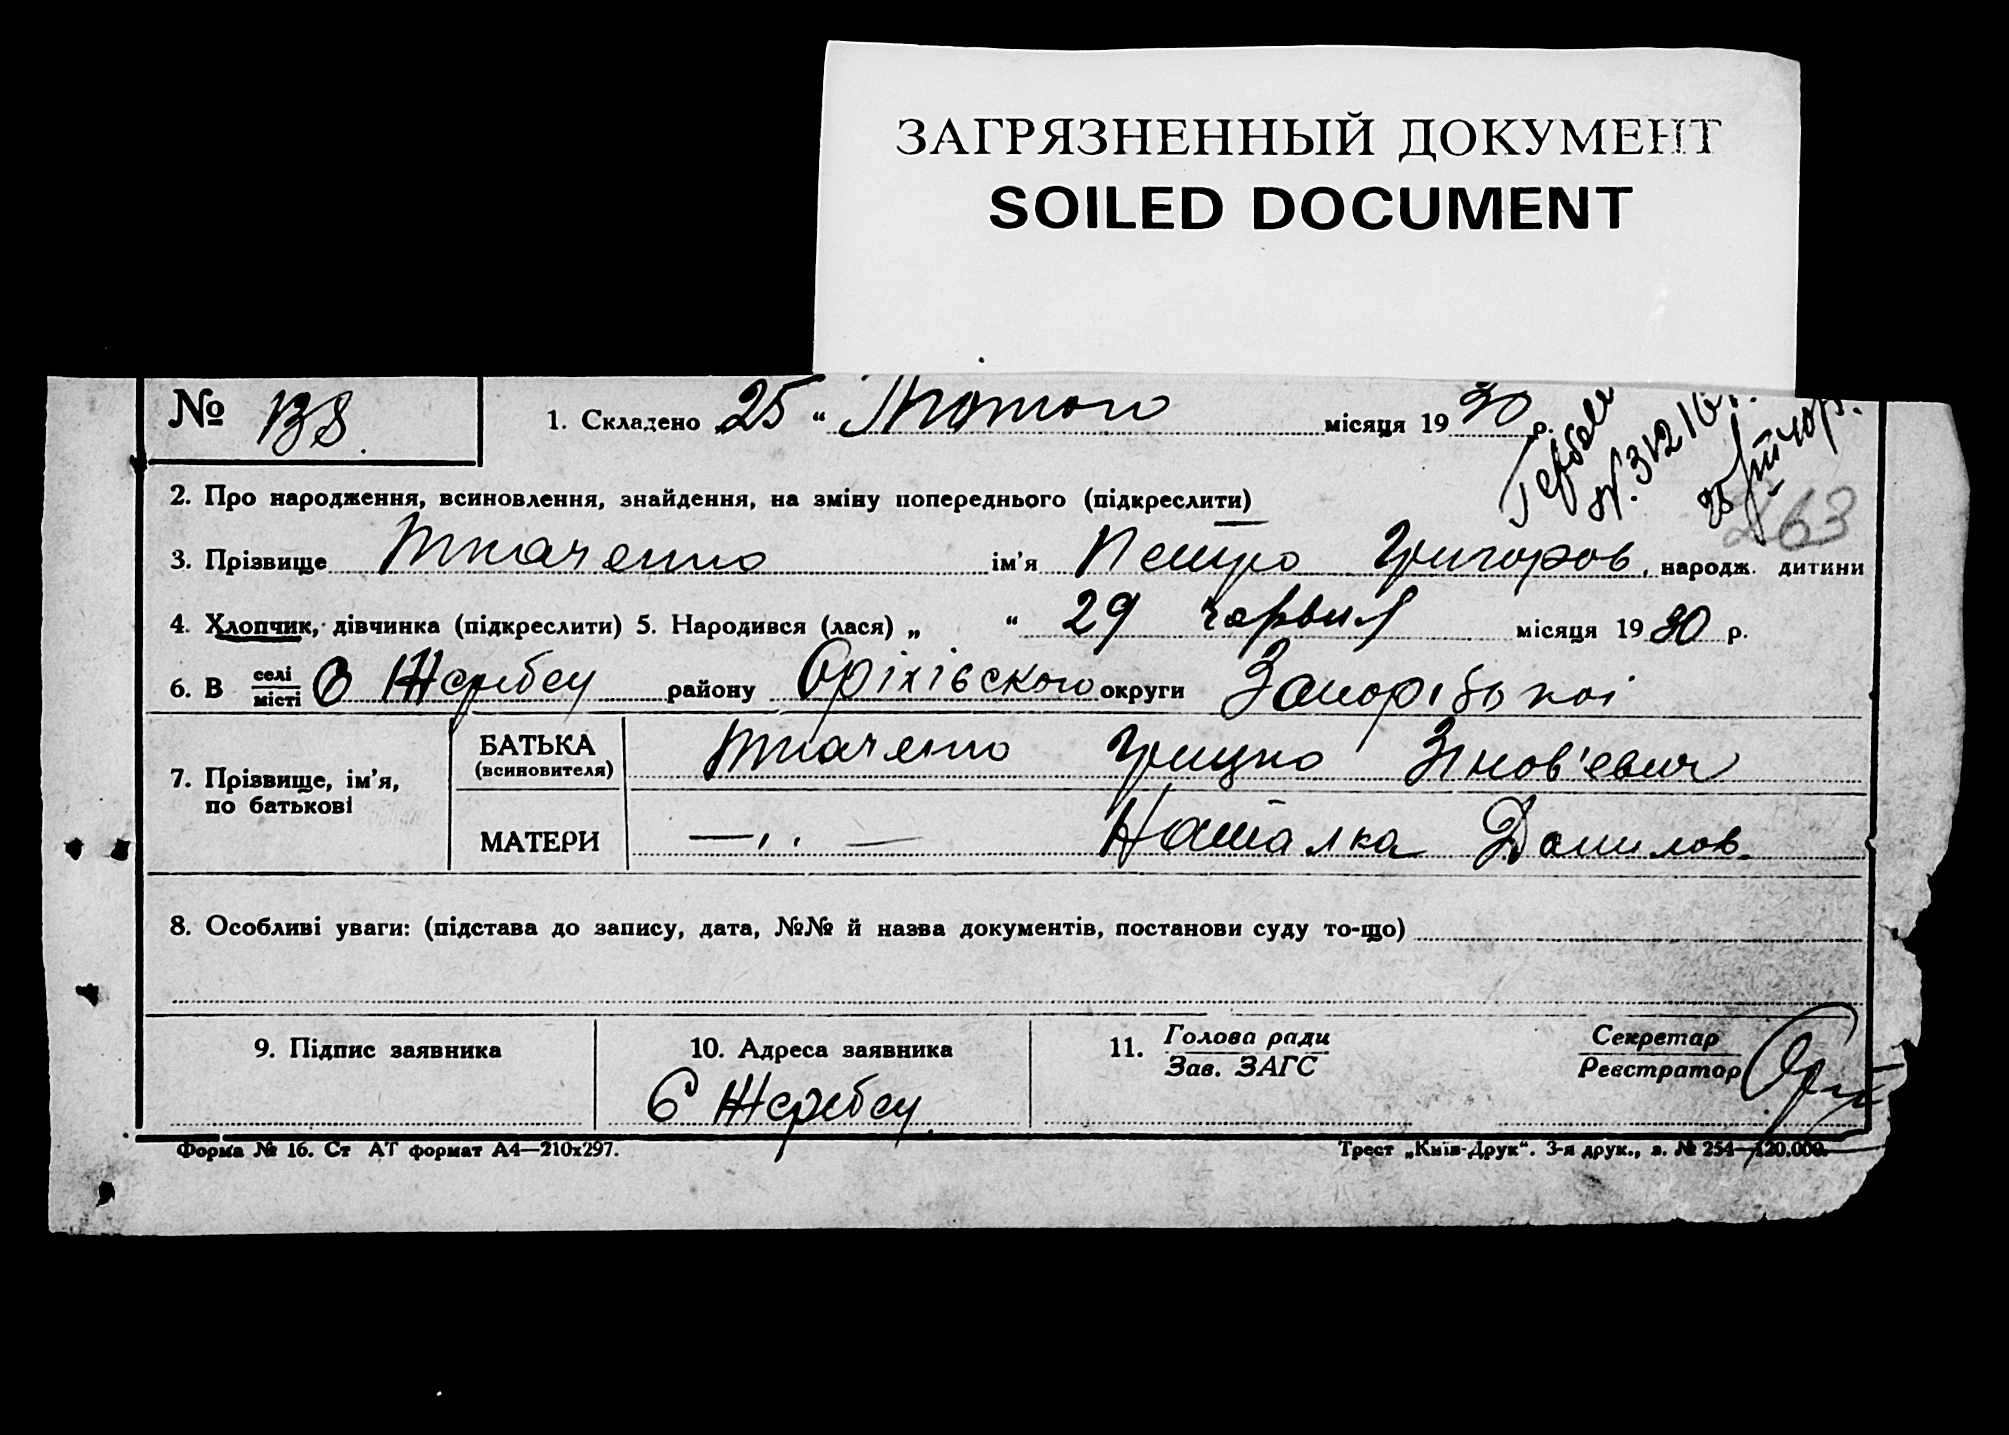 ЗАГРЯЗНЕННЫЙ ДОКУМЕНТ
SOILED DOCUMENT
№ 138.
1. Складено 25 “ Лютого місяця 1930 р.
2. Про народження, всиновлення, знайдення, на зміну попереднього (підкреслити)
3. Прізвище Ткаченко ім’я Петро Григоров. народж. дитини
263
4. Хлопчик, дівчинка (підкреслити) 5. Народився (лася) „ “ 29 червня місяця 1930 р.
6. В селі місті С Жеребец району Оріхівского округи Запорізькоі
7. Прізвище, ім’я, по батькові
БАТЬКА (всиновителя) Ткаченко Грицко Зінов'евич
МАТЕРИ — ,, — Наталка Данилов.
8. Особливі уваги: (підстава до запису, дата, №№ й назва документів, постанови суду то-що)
9. Підпис заявника
10. Адреса заявника
С Жеребец
11. Голова ради
Зав. ЗАГС
Секретар
Реєстратор
Форма № 16. Ст АТ формат А4—210х297.
Трест „Київ-Друк“. 3-я друк., з. № 254—120.000.